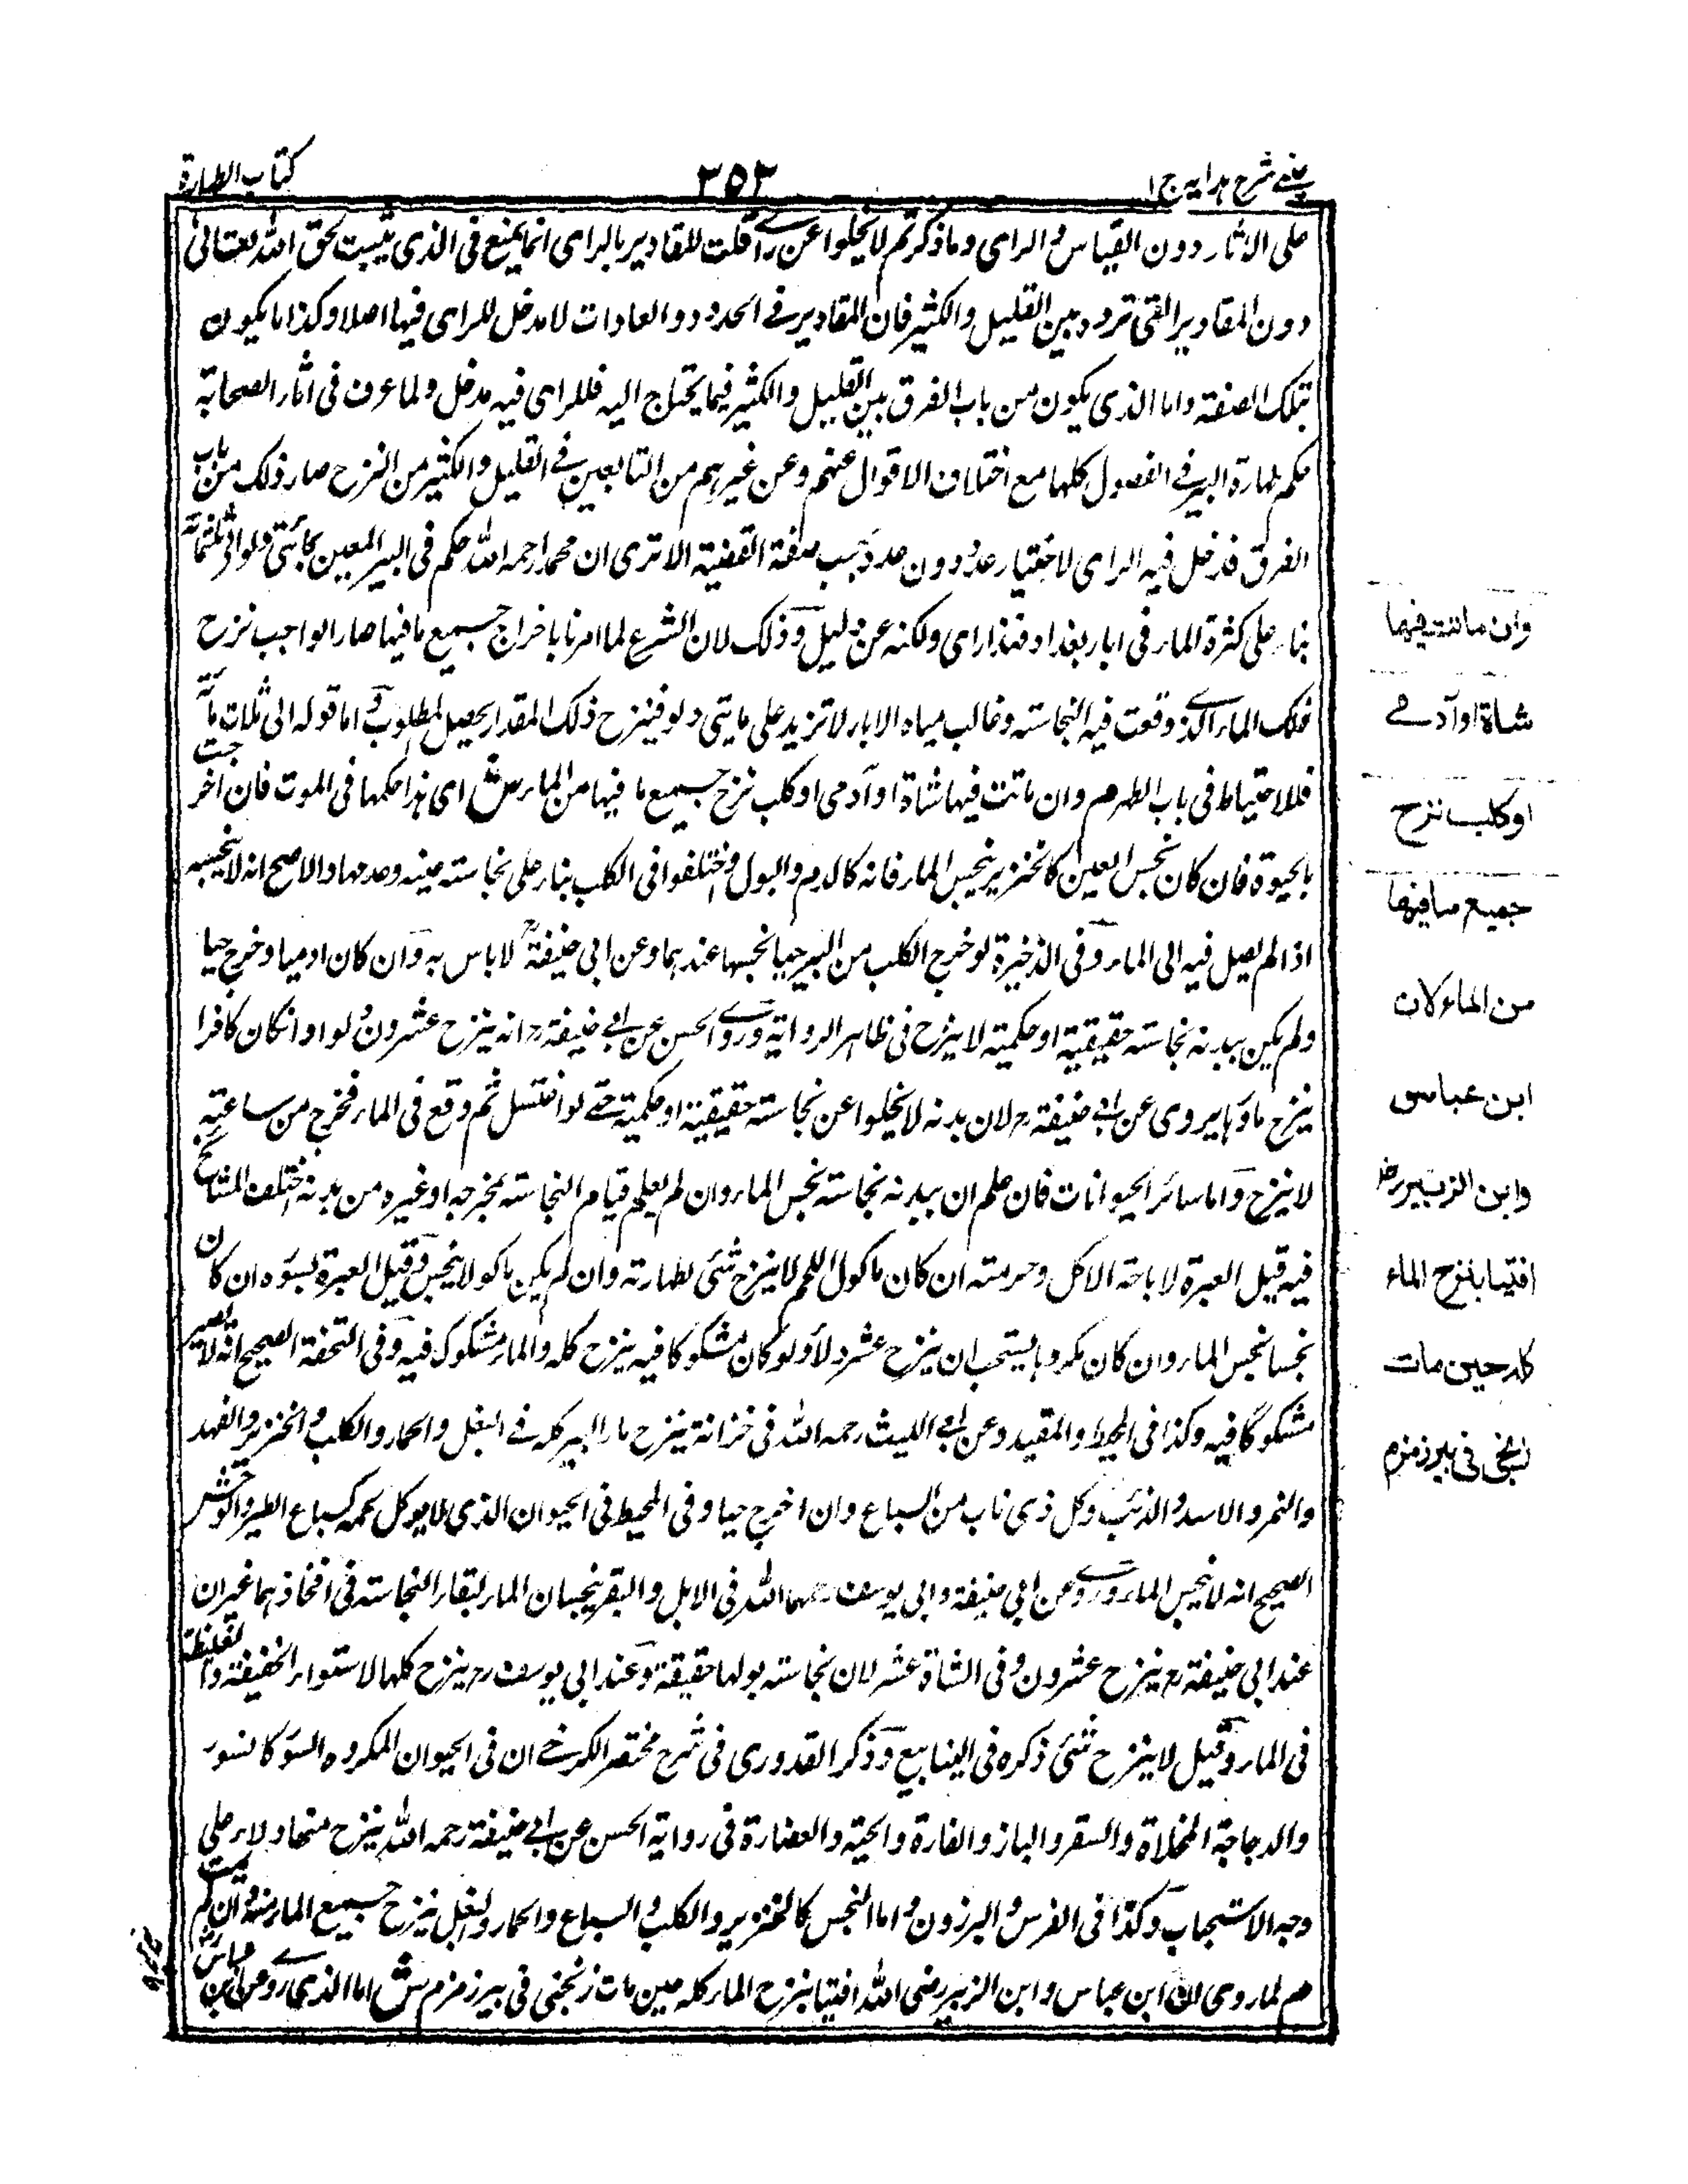 عینی شرح ہدایہ ج ۱
۳۵۳
کتاب الطہارة
علی الاثار دون القیاس و الرای وما ذکرتم لا یخلوا عن رای قلت المقادیر بالرای انما یمنع فی الذی یثبت لحق اللہ تعالیٰ
دون المقادیر التی تردد بین القلیل والکثیر فان المقادیر فے الحدود والعادات لا مدخل للرای فیہا اصلا وکذا ما یکون
بتلک الصفتہ واما الذی یکون من باب الفرق بین القلیل والکثیر فیما یحتاج الیہ فللرای فیہ مدخل ولما عرف فی اثار الصحابۃ
حکم طہارة البیر فے الفصول کلہا مع اختلاف الاقوال عنہم وعن غیرہم من التابعین فے القلیل والکثیر من النزح صار ذلک من باب
الفرق فدخل فیہ الرای لاختیار عدد دون عدد بحسب صفۃ القضیۃ الا تری ان محمدا رحمہ اللہ حکم فی البیر المعین بمائتی دلو او ثلثمائۃ
بناء علی کثرة الماء فی ابار بغداد فہذا رای ولکنہ عن دلیل وذلک لان الشرع لما امرنا باخراج جمیع ما فیہا صار الواجب نزح
ذلک الماء الذے وقعت فیہ النجاستہ وغالب میاہ الابار لا تزید علی مایتی دلو فینزح ذلک المقدار یحصل المطلوب واما قولہ الی ثلاث مائۃ
فللاحتیاط فی باب الطہر م وان ماتت فیہا شاة او آدمی او کلب نزح جمیع ما فیہا من الماء ش ای ہذا حکمہا فی الموت فان اخرجت
بالحیوة فان کان نجس العین کالخنزیر ینجس الماء فانہ کالدم والبول واختلفوا فی الکلب بناء علی نجاستہ عینہ وعدمہا والاصح انہ لا ینجسہ
اذا لم یصل فیہ الی الماء وفی الذخیرة لو خرج الکلب من البیر حیا نجسہا عندہما وعن ابی حنیفۃ لا باس بہ وان کان ادمیا وخرج حیا
ولم یکن ببدنہ نجاستہ حقیقیۃ او حکمیۃ لا ینزح فی ظاہر الروایۃ وروے الحسن عن ابی حنیفۃ رح انہ ینزح عشرون دلوا وانکان کافرا
ینزح ماؤہا یروی عن ابی حنیفۃ رح لان بدنہ لا یخلوا عن نجاستہ حقیقیۃ او حکمیۃ حتے لو اغتسل ثم وقع فی الماء فخرج من ساعتہ
لا ینزح واما سائر الحیوانات فان علم ان ببدنہ نجاستہ نجس الماء وان لم یعلم قیام النجاستہ بمخرجہ او غیرہ من بدنہ اختلف المشایخ
فیہ قیل العبرة لاباحۃ الاکل وحرمتہ ان کان ماکول اللحم لا ینزح شئی لطہارتہ وان لم یکن ماکولا ینجس وقیل العبرة بسورہ ان کان
نجسا نجس الماء وان کان مکروہا یستحب ان ینزح عشر دلاء ولو کان مشکوکا فیہ ینزح کلہ والماء مشکوک فیہ وفی التحفۃ الصحیح انہ لا یصیر
مشکوکا فیہ وکذا فی المحیط والمفید وعن ابی اللیث رحمہ اللہ فی خزانۃ ینزح ماء البیر کلہ فے البغل والحمار والکلب والخنزیر والفہد
والنمر والاسد والذئب وکل ذی ناب من السباع وان اخرج حیا وفی المحیط فی الحیوان الذی لا یوکل لحمہ کسباع الطیر والوحش
الصحیح انہ لا ینجس الماء وروے عن ابی حنیفۃ وابی یوسف رحمہما اللہ فی الابل والبقر ینجسان الماء لبقاء النجاستہ فی افخاذہما غیر ان
عند ابی حنیفۃ رح ینزح عشرون وفی الشاة عشر لان نجاستہ بولہا حقیقۃ وعند ابی یوسف رح ینزح کلہا لاستواء الخفیفۃ والغلیظۃ
فی الماء وقیل لا ینزح شئی ذکرہ فی الینابیع وذکر القدوری فی شرح مختصر الکرخے ان فی الحیوان المکروہ السور کالسنور
والدجاجۃ المخلاة والسقر والباز والفارة والحیۃ والعضارة فی روایۃ الحسن عن ابی حنیفۃ رحمہ اللہ ینزح منہا دلاء علی
وجہ الاستحباب وکذا فی الفرس والبرذون واما النجس کالخنزیر والکلب والسباع والحمار والبغل ینزح جمیع الماء منہ وان لم یمت
م لما روی ان ابن عباس وابن الزبیر رضی اللہ افتیا بنزح الماء کلہ حین مات زنجی فی بیر زمزم ش اما الذی روے عن ابن عباس
وان ماتت فیہا
شاة او آدمے
او کلب نزح
جمیع ما فیہا
من الماء لان
ابن عباس
وابن الزبیر رض
افتیا بنزح الماء
کلہ حین مات
زنجی فی بیر زمزم